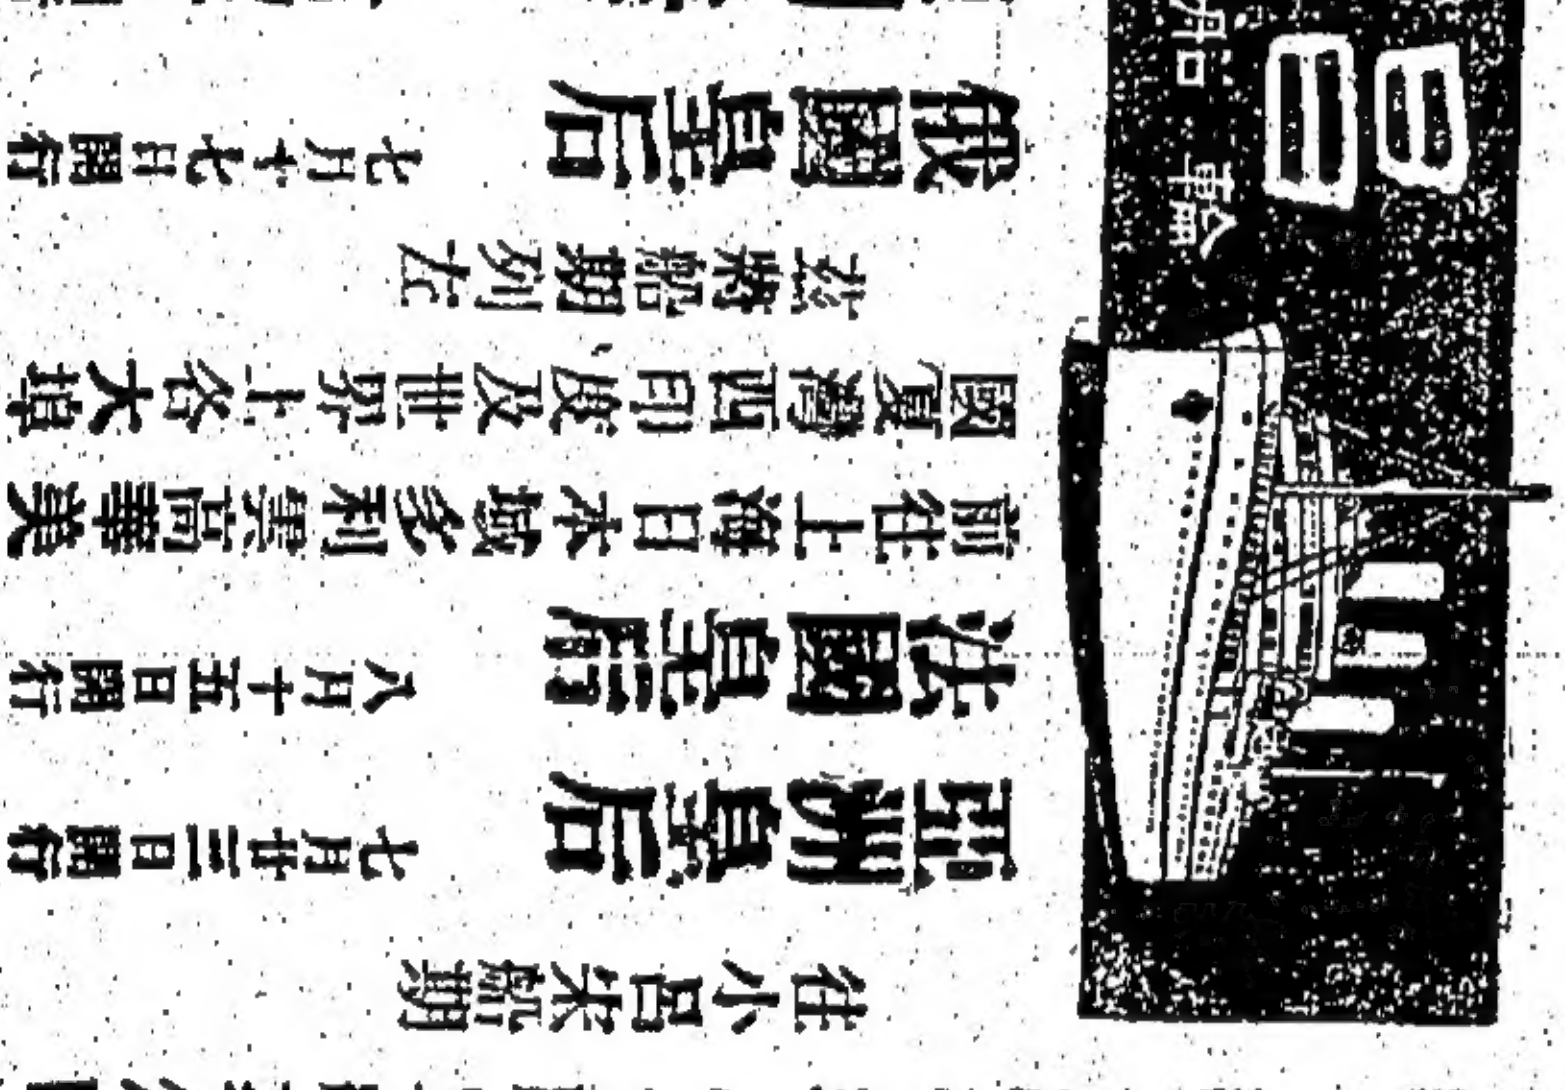 往小呂宋船期
亞洲皇后 七月廿三日開行
法國皇后 八月十五日開行
前往上海日本域多利雲高華美
國夏灣西印度及世界上各大埠
茲將船期列左
俄國皇后 七月十七日開行